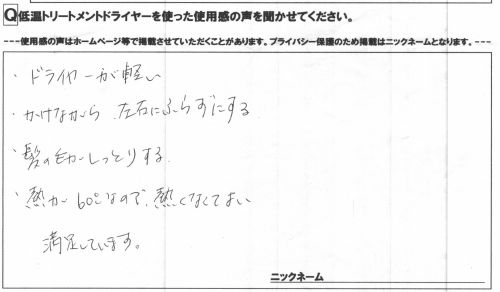 Q低温トリートメントドライヤーを使った使用感の声を聞かせてください。
---使用感の声はホームページ等で掲載させていただくことがあります。プライバシー保護のため掲載はニックネームとなります。---
・ドライヤーが軽い
・かけながら 左右にふらずにする
・髪の毛がしっとりする
・熱が60℃なので、熱くなくてよい
満足しています。
ニックネーム